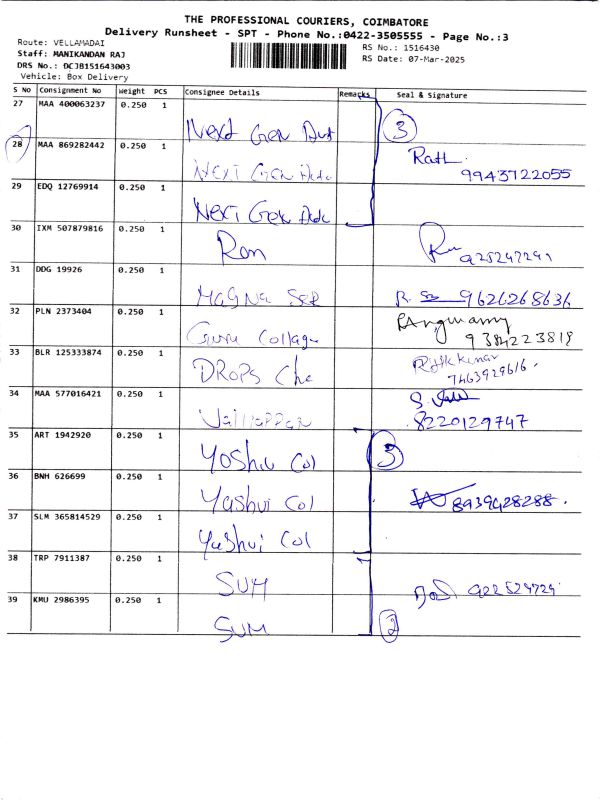 THE PROFESSIONAL COURIERS, COIMBATORE
Delivery Runsheet - SPT - Phone No.:0422-3505555 - Page No.:3
Route: VELLAMADAI
RS No.: 1516430
Staff: MANIKANDAN RAJ
RS Date: 07-Mar-2025
DRS No.: DCJB151643003
Vehicle: Box Delivery
S No Consignment No Weight PCS Consignee Details Remarks Seal & Signature
27 MAA 400063237 0.250 1 Next Gen 3
28 MAA 869282442 0.250 1 Next Gen 9943722055
29 EDQ 12769914 0.250 1 Next Gen
30 IXM 507879816 0.250 1 Ron
31 DDG 19926 0.250 1 MaGNa 9626268636
32 PLN 2373404 0.250 1 Guru Collage 9384223819
33 BLR 125333874 0.250 1 DROPS Che 7463929616.
34 MAA 577016421 0.250 1 8220129747
35 ART 1942920 0.250 1 Col 3
36 BNH 626699 0.250 1 Yashvi Col 8939428288.
37 SLM 365814529 0.250 1 Yashvi Col
38 TRP 7911387 0.250 1 SUM
39 KMU 2986395 0.250 1 SUM 2